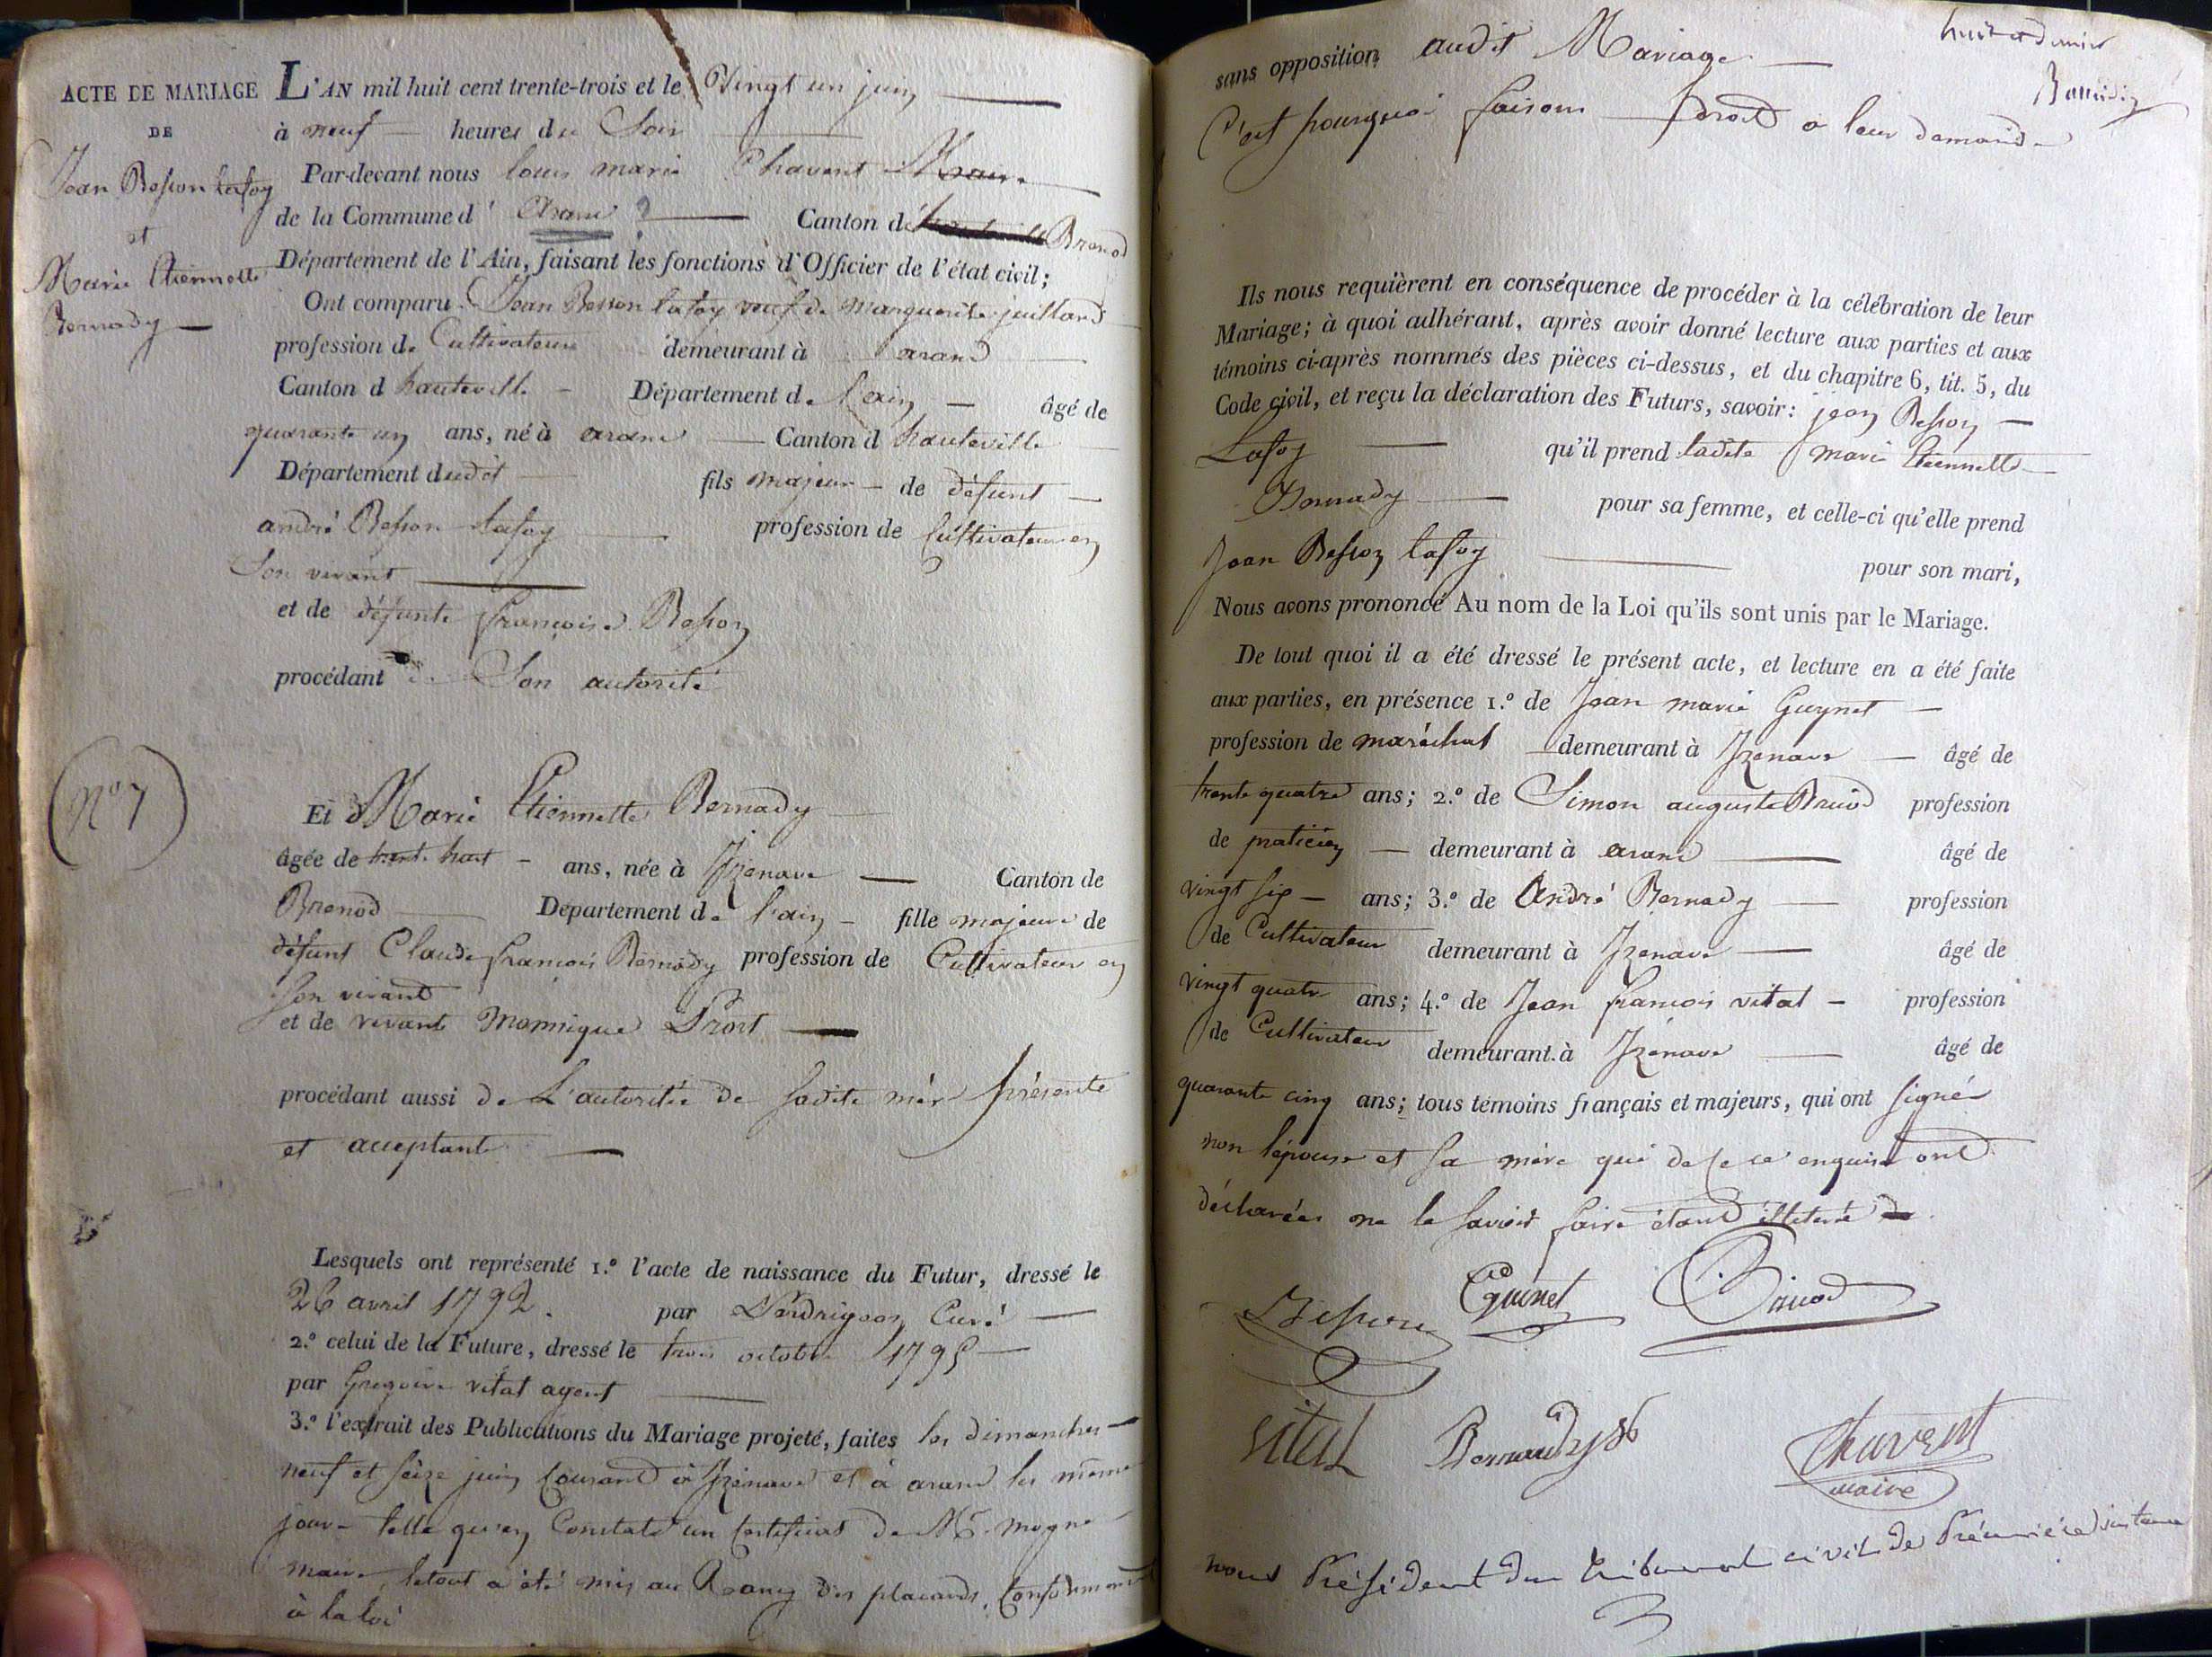 ACTE DE MARIAGE
DE
Jean Besson Lafoy
et
Marie Etiennette
Bernady
N° 7
L'AN mil huit cent trente-trois et le Vingt un juin
à neuf heures du Soir
Par-devant nous louis marie Chavent Maire
de la Commune d' Aranc ? Canton de Brenod
Département de l'Ain, faisant les fonctions d'Officier de l'état civil;
Ont comparu Jean Besson lafoy veuf de marguerite juillard
profession de Cultivateur demeurant à arand
Canton d hauteville Département de l'ain âgé de
quarante un ans, né à aranc Canton d hauteville
Département dudit fils majeur de défunt
andré Besson lafoy profession de Cultivateur en
Son vivant
et de défunte françoise Besson
procédant de Son autorité
Et Marie Etiennette Bernady
âgée de trente huit ans, née à Izenave Canton de
Brenod Département de l'ain fille majeure de
défunt Claude françois Bernady profession de Cultivateur en
Son vivant
et de vivante Monnique Prost
procédant aussi de L'autoritée de sadite mèr présente
et acceptante
Lesquels ont représenté 1.º l'acte de naissance du Futur, dressé le
26 avril 1792. par Curé
2.º celui de la Future, dressé le trois octobre 1795
par Gregoire vital agent
3.º l'extrait des Publications du Mariage projeté, faites les dimanches
neuf et seize juin Courant à Izenave et à arand les même
jour telle qu'en Constate un Certificat de Mr. mogne
maire, letout a été mis au Rang des placards, Conformement
à la loi
sans opposition audit Mariage
C'est pourquoi faisons droit a leur demande
Ils nous requièrent en conséquence de procéder à la célébration de leur
Mariage; à quoi adhérant, après avoir donné lecture aux parties et aux
témoins ci-après nommés des pièces ci-dessus, et du chapitre 6, tit. 5, du
Code civil, et reçu la déclaration des Futurs, savoir: jean Besson
Lafoy qu'il prend ladite marie Etiennette
Bernady pour sa femme, et celle-ci qu'elle prend
Jean Besson lafoy pour son mari,
Nous avons prononcé Au nom de la Loi qu'ils sont unis par le Mariage.
De tout quoi il a été dressé le présent acte, et lecture en a été faite
aux parties, en présence 1.º de Jean marie Guynet
profession de maréchal demeurant à Izenave âgé de
trente quatre ans; 2.º de Simon auguste Bruod profession
de praticien demeurant à arand âgé de
vingt six ans; 3.º de André Bernady profession
de Cultivateur demeurant à Izenave âgé de
vingt quatre ans; 4.º de Jean françois vital profession
de Cultivateur demeurant à Izenave âgé de
quarante cinq ans; tous témoins français et majeurs, qui ont signé
non lépouse et sa mère qui de ce enquise ont
déclarées ne le savoir faire étant illeteré
Besson Guinet Bruod
vital Bernady Chavent
maire
nous Président du tribunal civil de Première instance